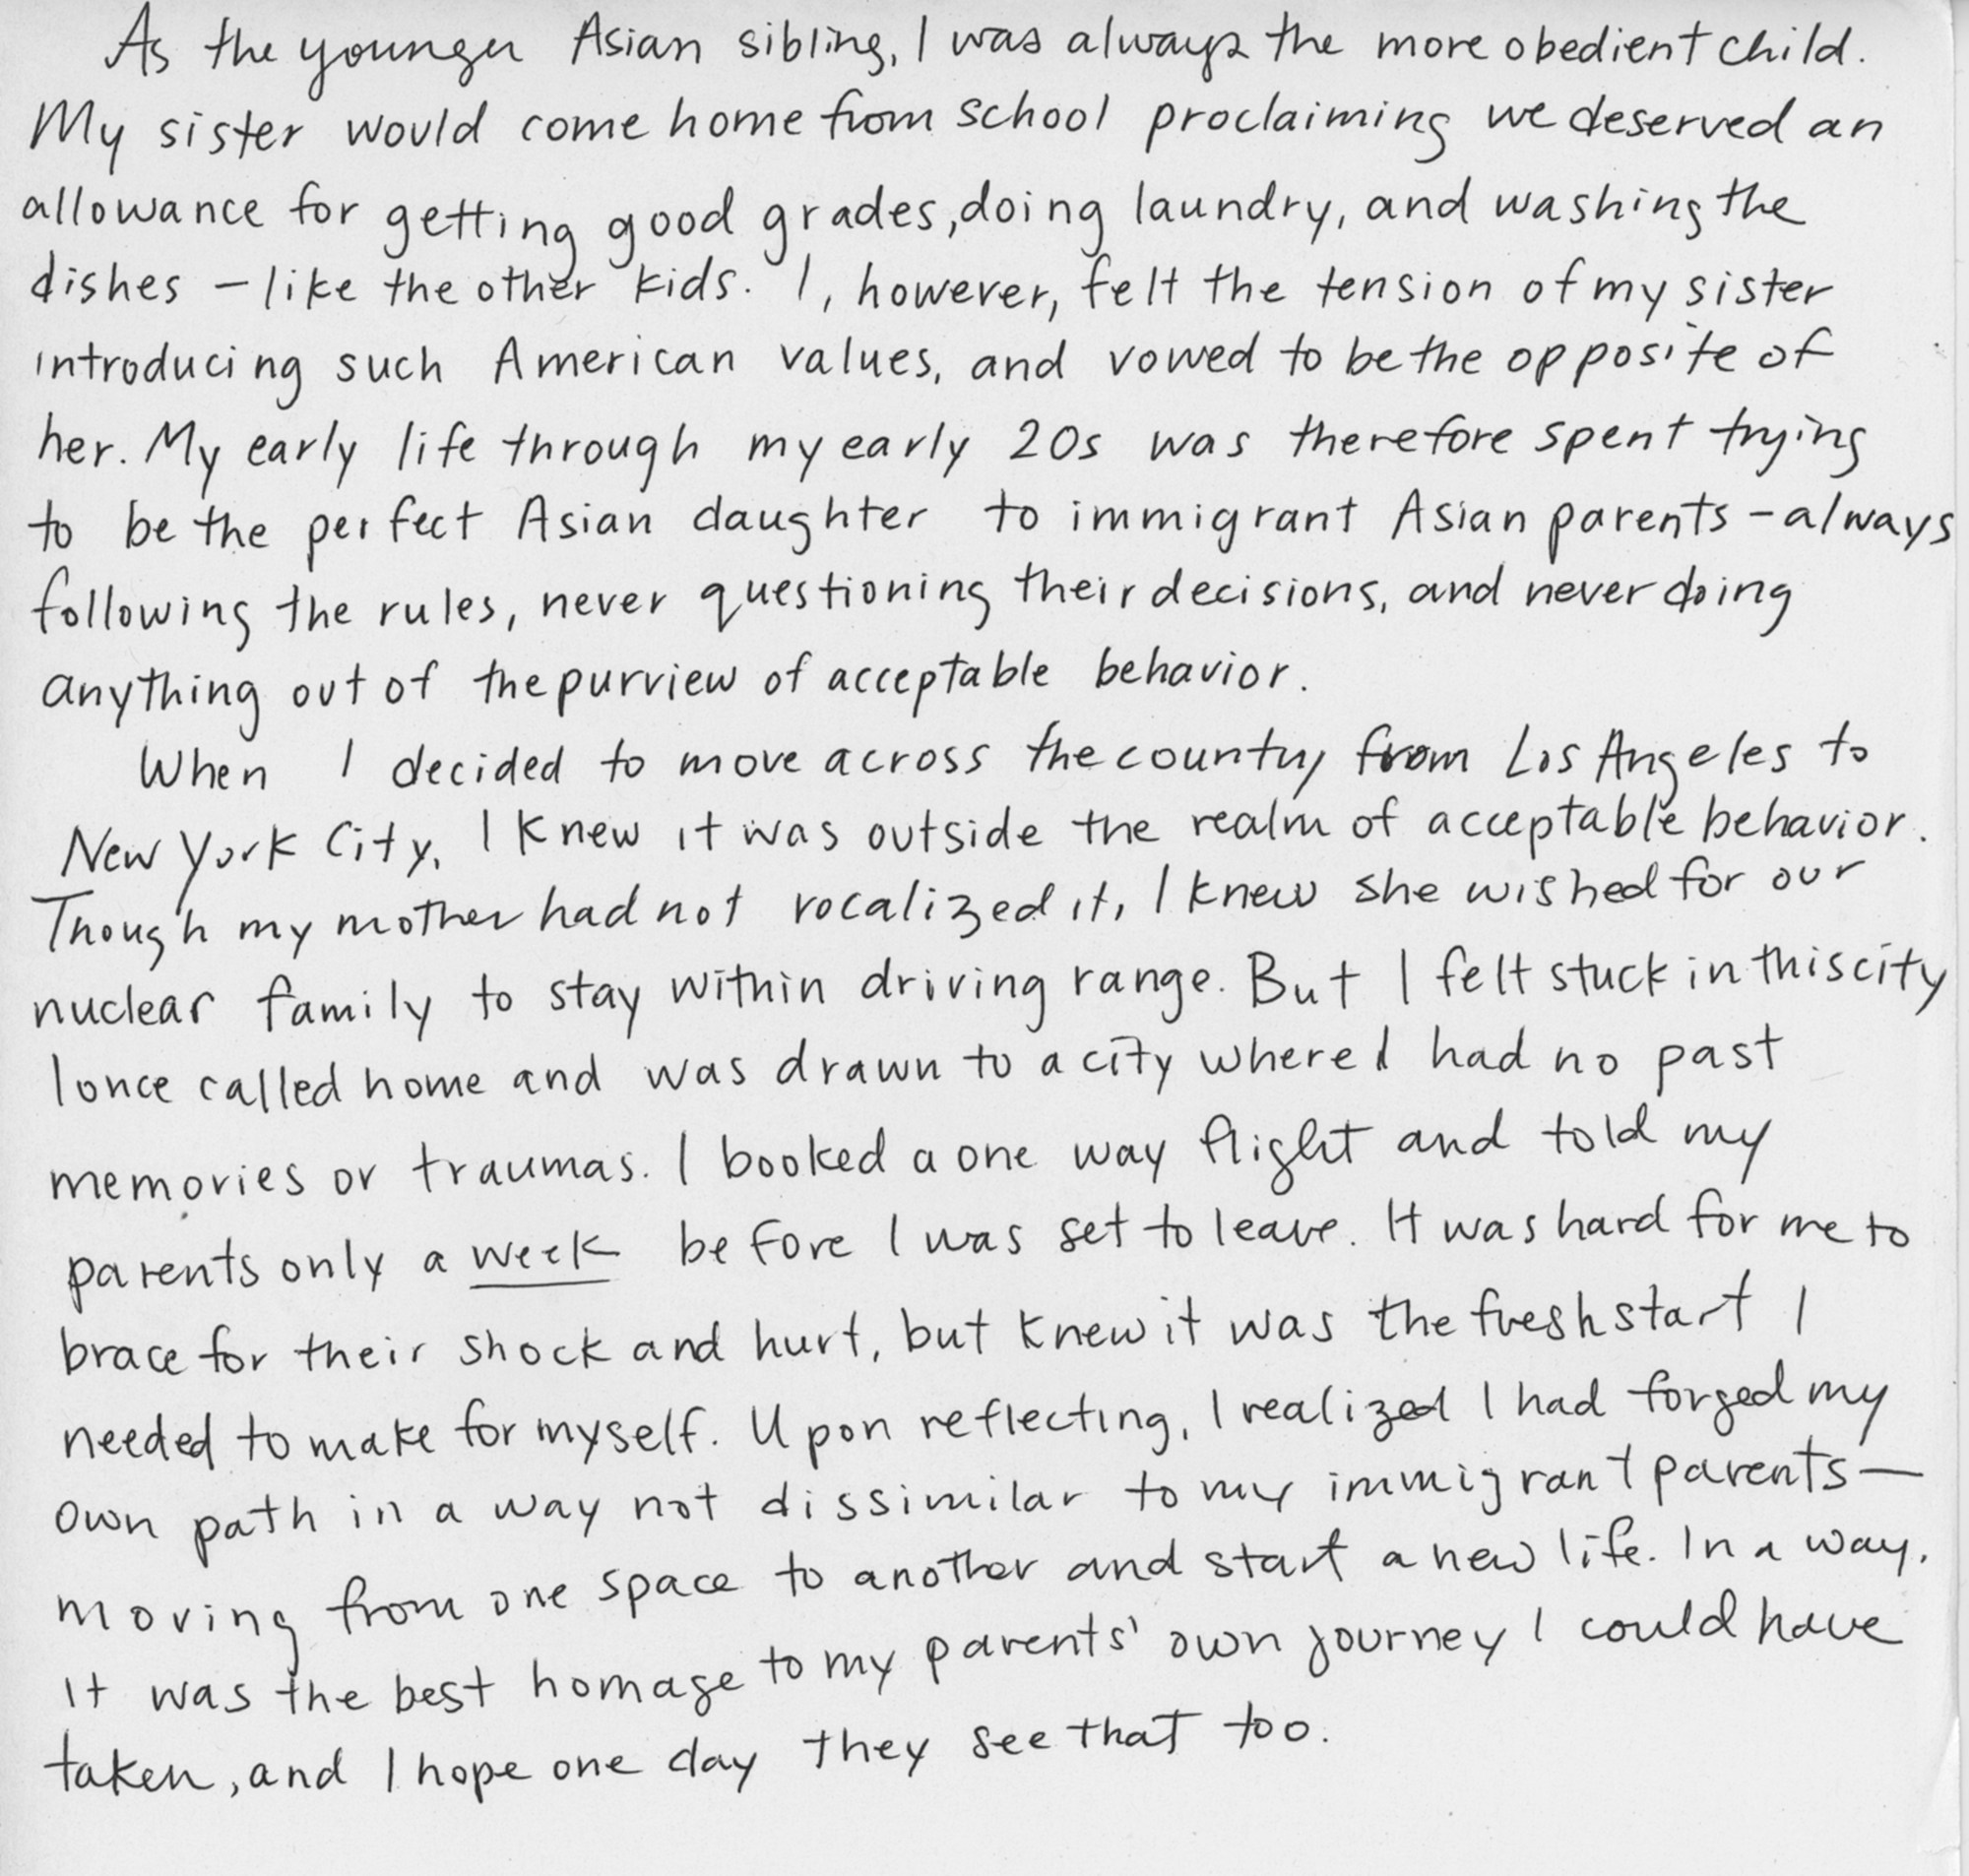 As the younger Asian sibling, I was always the more obedient child.
My sister would come home from school proclaiming we deserved an
allowance for getting good grades, doing laundry, and washing the
dishes – like the other kids. I, however, felt the tension of my sister
introducing such American values, and vowed to be the opposite of
her. My early life through my early 20s was therefore spent trying
to be the perfect Asian daughter to immigrant Asian parents – always
following the rules, never questioning their decisions, and never doing
anything out of the purview of acceptable behavior.
When I decided to move across the country from Los Angeles to
New York City, I knew it was outside the realm of acceptable behavior.
Though my mother had not vocalized it, I knew she wished for our
nuclear family to stay within driving range. But I felt stuck in this city
I once called home and was drawn to a city where I had no past
memories or traumas. I booked a one way flight and told my
parents only a week before I was set to leave. It was hard for me to
brace for their shock and hurt, but knew it was the fresh start I
needed to make for myself. Upon reflecting, I realized I had forged my
own path in a way not dissimilar to my immigrant parents —
moving from one space to another and start a new life. In a way,
it was the best homage to my parents' own journey I could have
taken, and I hope one day they see that too.